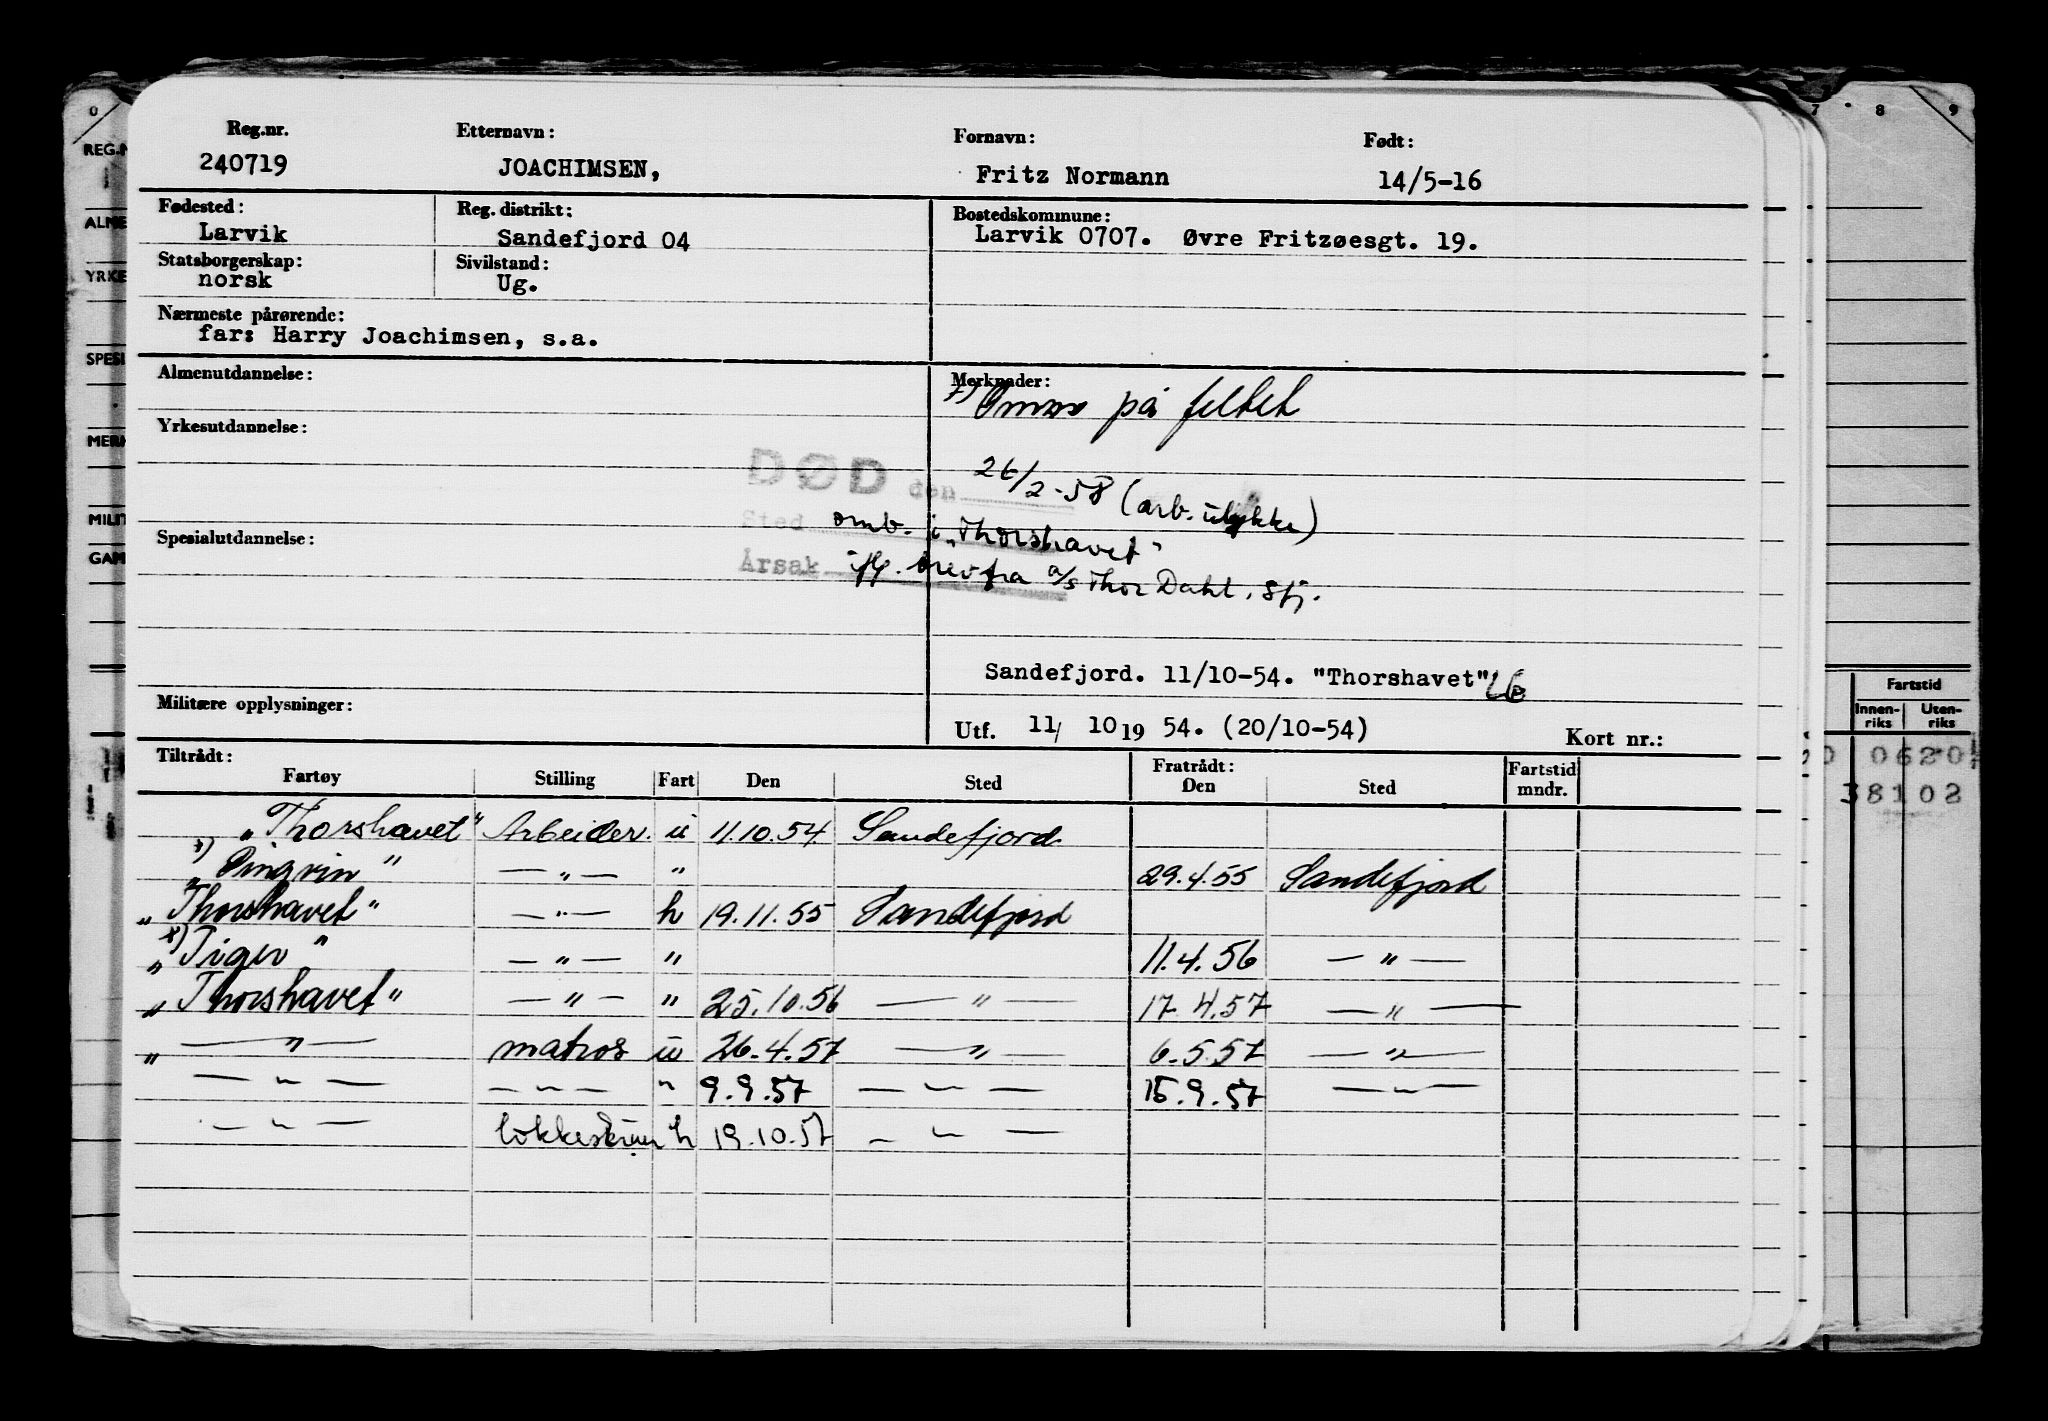 Reg.nr. Etternavn: Fornavn: Født:
240719 JOACHIMSEN, Fritz Normann 14/5-16
Fødested: Reg. distrikt: Bostedskommune:
Larvik Sandefjord 04 Larvik 0707. Øvre Fritzøesgt. 19.
Statsborgerskap: Sivilstand:
norsk Ug.
Nærmeste pårørende:
far: Harry Joachimsen, s.a.
Almenutdannelse: Merknader:
x) Omm på feltet
Yrkesutdannelse:
DØD den 26/2-58 (arb. ulykke)
Sted omb. i "Thorshavet"
Spesialutdannelse:
Årsak iflg. brev fra a/s Thor Dahl, Sfj.
Sandefjord. 11/10-54. "Thorshavet"
Militære opplysninger:
Utf. 11/ 10 19 54. (20/10-54) Kort nr.:
Tiltrådt: Fratrådt:
Fartøy Stilling Fart Den Sted Den Sted Fartstid mndr.
"Thorshavet" Arbeider. u 11.10.54. Sandefjord
x) "Pingvin" — " — " 29.4.55 Sandefjord
"Thorshavet" — " — h 19.11.55 Sandefjord
x) "Tiger" — " — " 11.4.56 — " —
"Thorshavet" — " — " 25.10.56 — " — 17.4.57 — " —
" — " — matros u 26.4.57 — " — 6.5.57 — " —
— " — — " — " 9.9.57 — " — 15.9.57 — " —
— " — h 19.10.57 — " —
0 7 8 9
REG.N
ALME
YRKE
SPESI
MERK
MILIT
GAM
Fartstid
Innen-riks Uten-riks
0620
38102